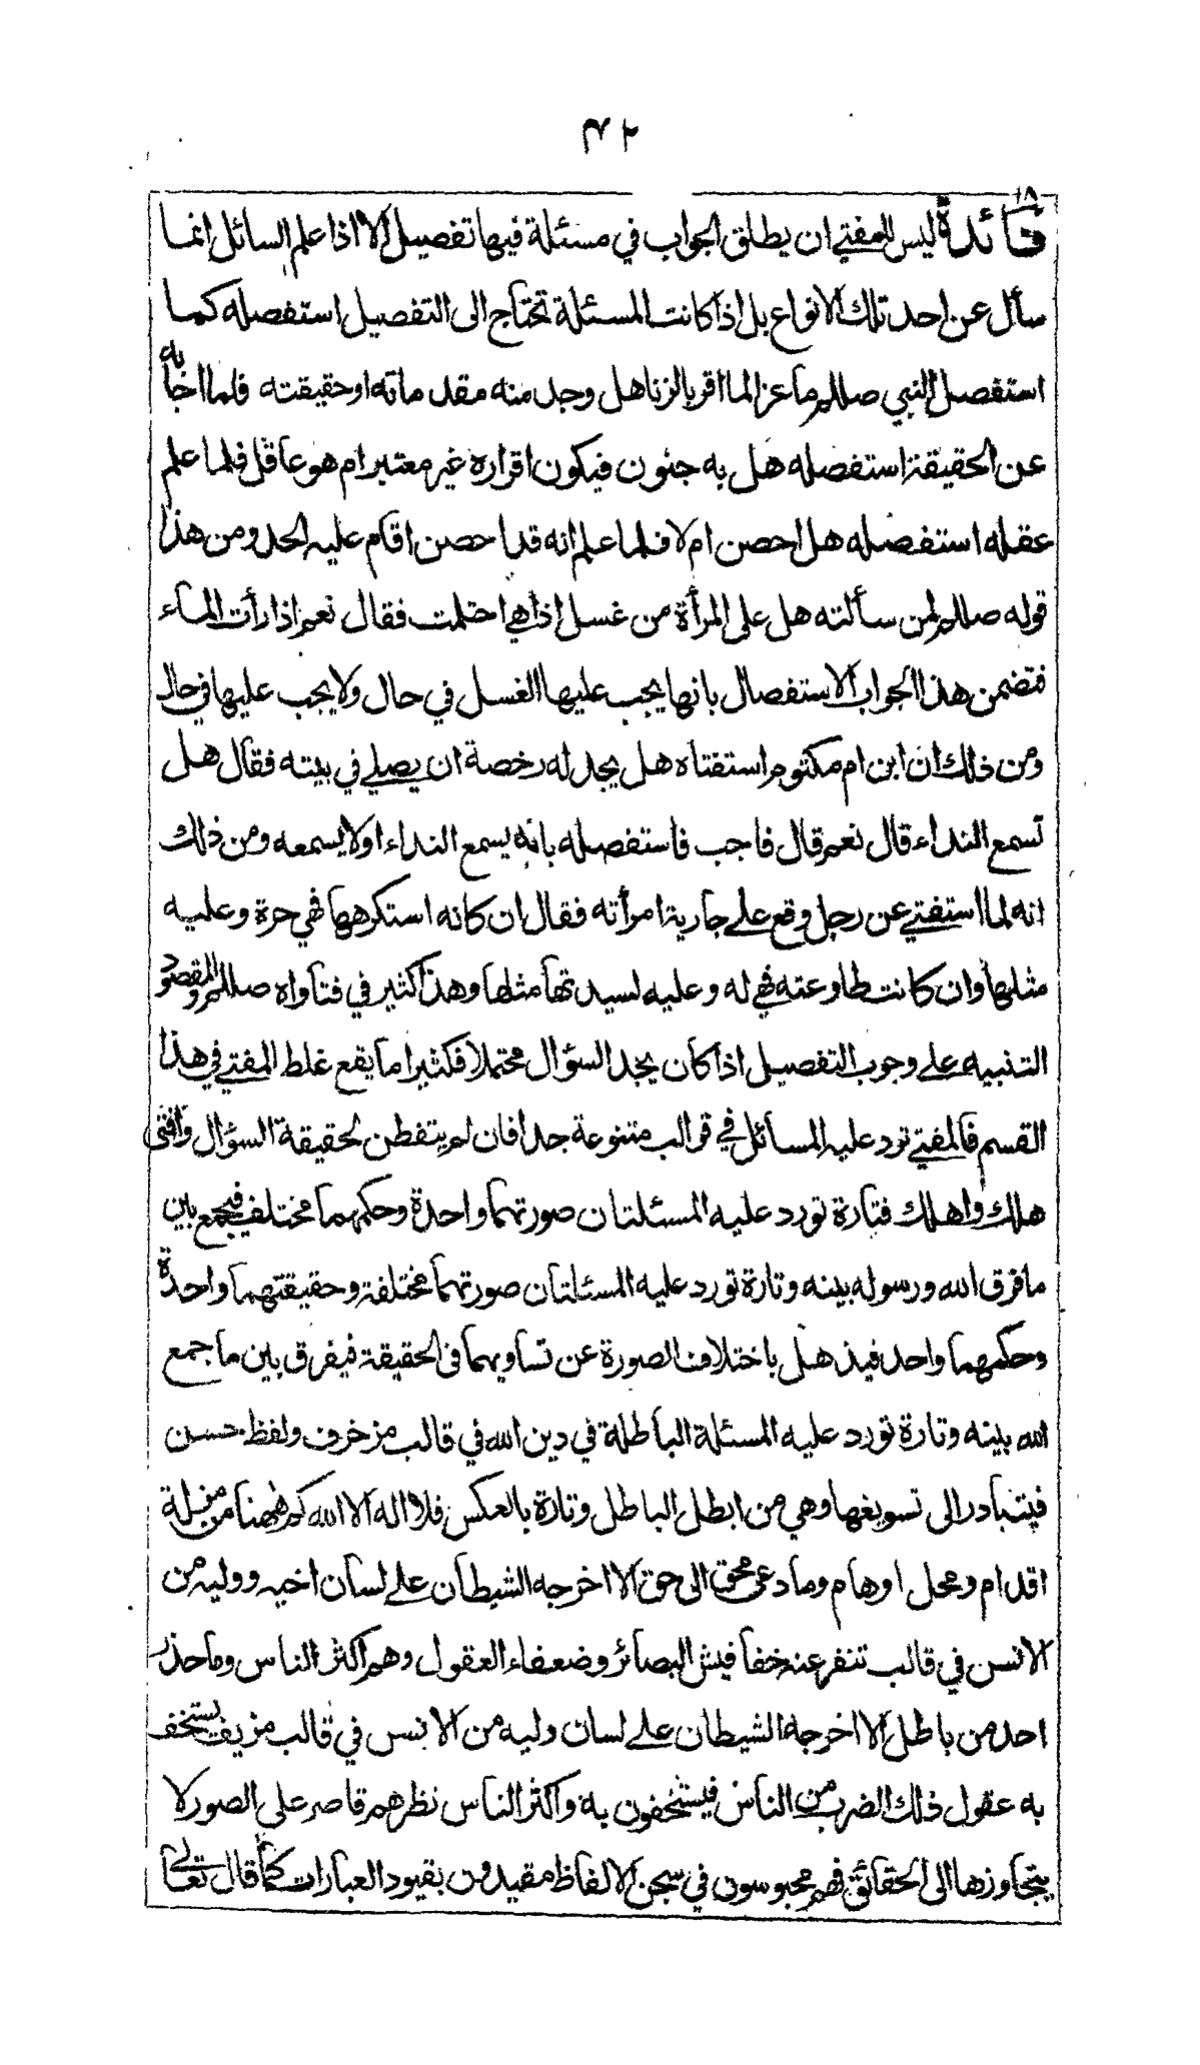 ٤٢
١٨
فائدة ليس للمفتي ان يطلق الجواب في مسئلة فيها تفصيل الا اذا علم السائل انما
سأل عن احد تلك الانواع بل اذا كانت المسئلة تحتاج الى التفصيل استفصله كما
استفصل النبي صللم ماعز الما اقر بالزنا هل وجد منه مقد ماته او حقيقته فلما اجابه
عن الحقيقة استفصله هل به جنون فيكون اقراره غير معتبر ام هو عاقل فلما علم
عقله استفصله هل احصن ام لا فلما علم انه قد احصن اقام عليه الحد ومن هذا
قوله صللم لمن سألته هل على المرأة من غسل اذا هي احتلمت فقال نعم اذا رأت الماء
فتضمن هذا الجواب الاستفصال بانها يجب عليها الغسل في حال ولا يجب عليها في حال
ومن ذلك ان ابن ام مكتوم استفتاه هل يجد له رخصة ان يصلي في بيته فقال هل
تسمع النداء قال نعم قال فاجب فاستفصله بانه يسمع النداء اولا يسمعه ومن ذلك
انه لما استفتي عن رجل وقع على جارية امرأته فقال ان كانه استكرهها فهي حرة وعليه
مثلها وان كانت طاوعته فهي له وعليه لسيدتها مثلها وهذا كثير في فتاواه صللم والمقصود
التنبيه على وجوب التفصيل اذا كان يجد السؤال محتملا فكثيرا ما يقع غلط المفتي في هذا
القسم فالمفتي ترد عليه المسائل في قوالب متنوعة جدا فان لم يتفطن لحقيقة السؤال وافتى
هلك واهلك فتارة تورد عليه المسئلتان صورتهما واحدة وحكمهما مختلف فيجمع بين
ما فرق الله ورسوله بينه وتارة تورد عليه المسئلتان صورتهما مختلفة وحقيقتهما واحدة
وحكمهما واحد فيذهل باختلاف الصورة عن تساويهما في الحقيقة فيفرق بين ما جمع
الله بينه وتارة تورد عليه المسئلة الباطلة في دين الله في قالب مزخرف ولفظ حسن
فيتبادر الى تسويغها وهي من ابطل الباطل وتارة بالعكس فلا اله الا الله كم ههنا من مزلة
اقدام ومحل اوهام وما دعى محق الى حق الا اخرجه الشيطان على لسان اخيه ووليه من
الانس في قالب تنفر عنه خفافيش البصائر وضعفاء العقول وهم اكثر الناس وما حذر
احد من باطل الا اخرجه الشيطان على لسان وليه من الانس في قالب مزيف يستخف
به عقول ذلك الضرب من الناس فيستخفون به واكثر الناس نظرهم قاصر على الصور لا
يتجاوزها الى الحقائق فهم محبوسون في سجن الالفاظ مقيدون بقيود العبارات كما قال تعالى